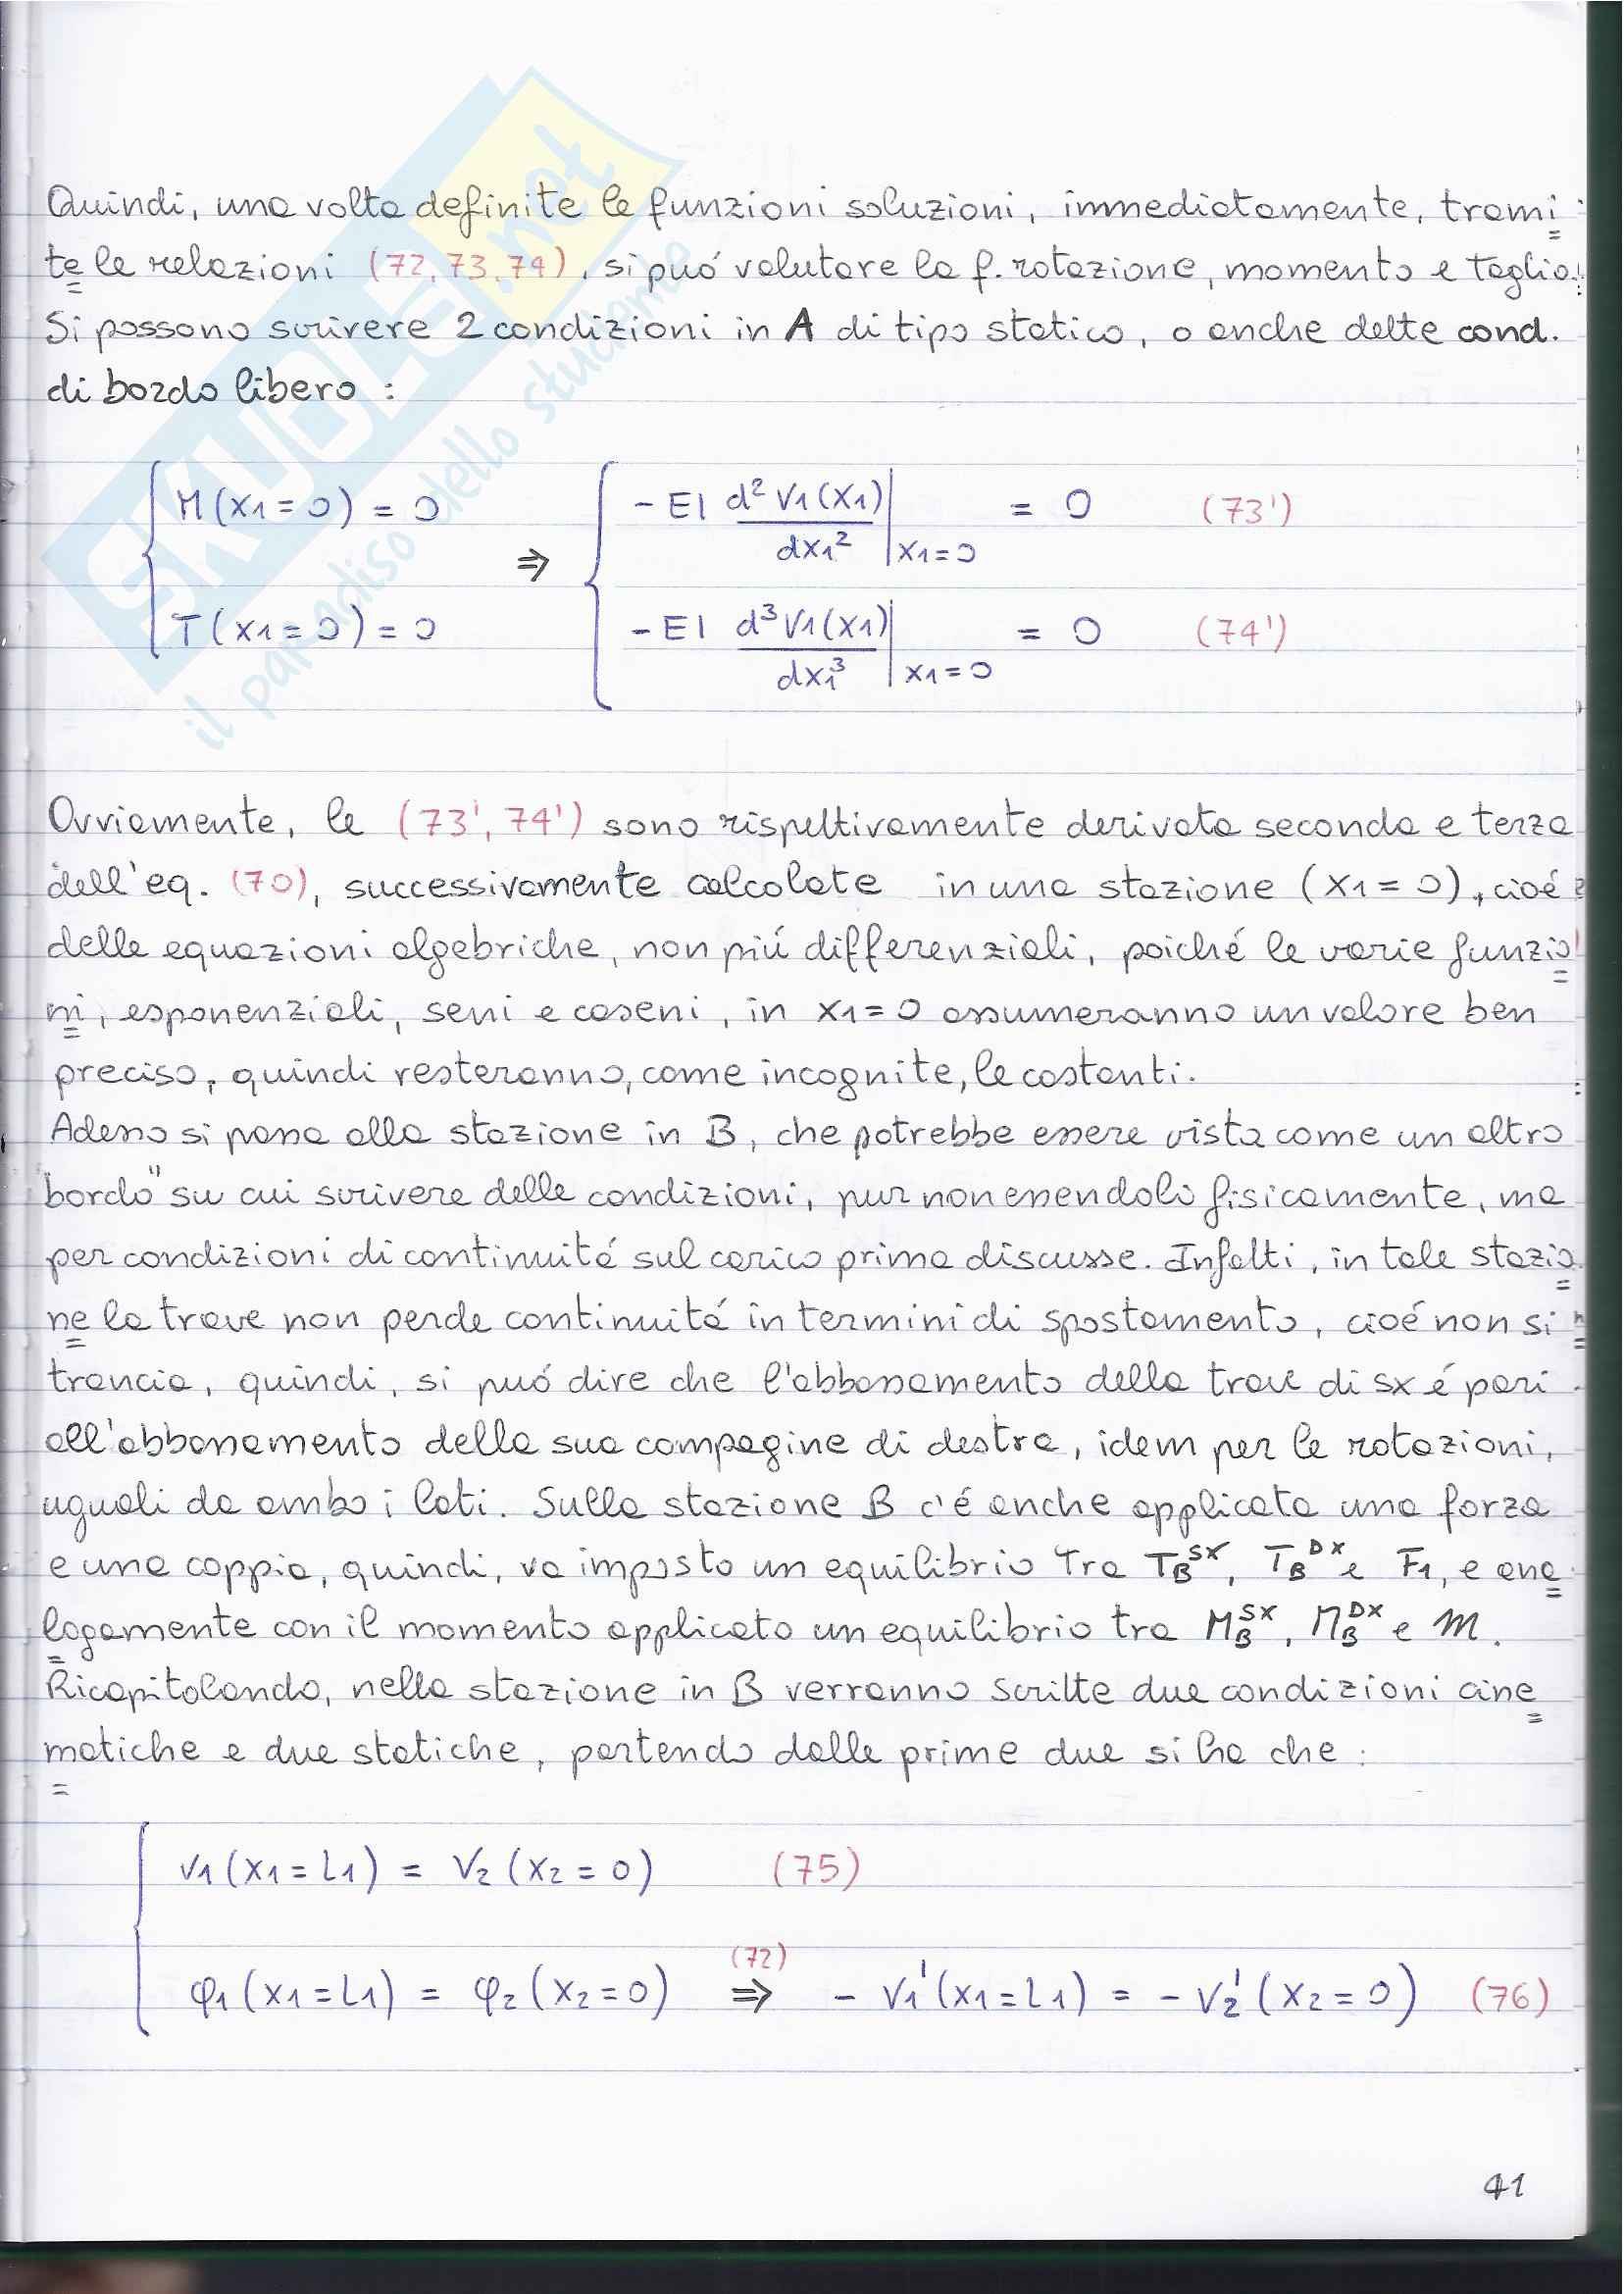 Quindi, una volta definite le funzioni soluzioni, immediatamente, trami
te le relazioni (72, 73, 74), si puó valutare la f. rotazione, momento e taglio.
Si possono scrivere 2 condizioni in A di tipo statico, o anche dette cond.
di bordo libero :
M(x1=0) = 0 ⇒ -EI d²V1(x1)/dx1² |x1=0 = 0 (73')
T(x1=0) = 0 -EI d³V1(x1)/dx1³ |x1=0 = 0 (74')
Ovviamente, le (73', 74') sono rispettivamente derivata seconda e terza
dell'eq. (70), successivamente calcolate in una stazione (x1=0), cioé
delle equazioni algebriche, non piú differenziali, poiché le varie funzio
ni, esponenziali, seni e coseni, in x1=0 assumeranno un valore ben
preciso, quindi resteranno, come incognite, le costanti.
Adesso si passa alla stazione in B, che potrebbe essere vista come un altro
bordo" su cui scrivere delle condizioni, pur non essendolo fisicamente, ma
per condizioni di continuitá sul carico prima discusse. Infatti, in tale stazio
ne la trave non perde continuitá in termini di spostamento, cioé non si
trancia, quindi, si puó dire che l'abbassamento della trave di sx é pari
all'abbassamento della sua compagine di destra, idem per le rotazioni,
uguali da ambo i lati. Sulla stazione B c'é anche applicata una forza
e una coppia, quindi, va imposto un equilibrio tra TB^SX, TB^DX e F1, e ana
logamente con il momento applicato un equilibrio tra MB^SX, MB^DX e m.
Ricapitolando, nella stazione in B verranno scritte due condizioni cine
matiche e due statiche, partendo dalle prime due si ha che :
V1(x1=L1) = V2(x2=0) (75)
φ1(x1=L1) = φ2(x2=0) (72) ⇒ -V1'(x1=L1) = -V2'(x2=0) (76)
41
SKUOLA.net
il paradiso dello studente